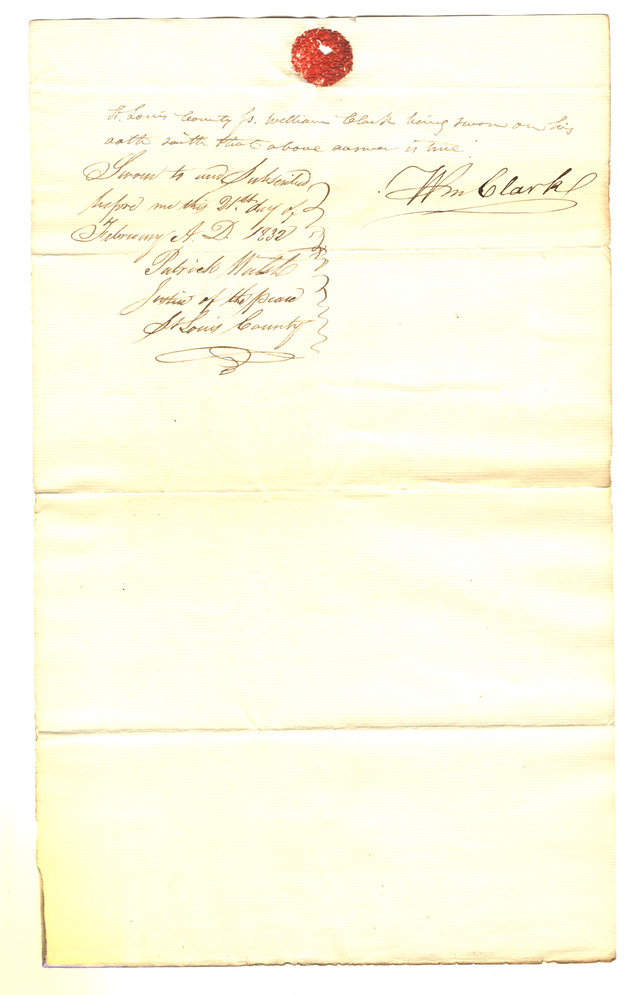 St. Louis County Ss. William Clark being sworn on his
oath saith that above answer is true
Sworn to and Subscribed
before me this 21st day of
February A. D. 1832
Patrick Walsh
Justice of the peace
St Louis County
Wm Clark